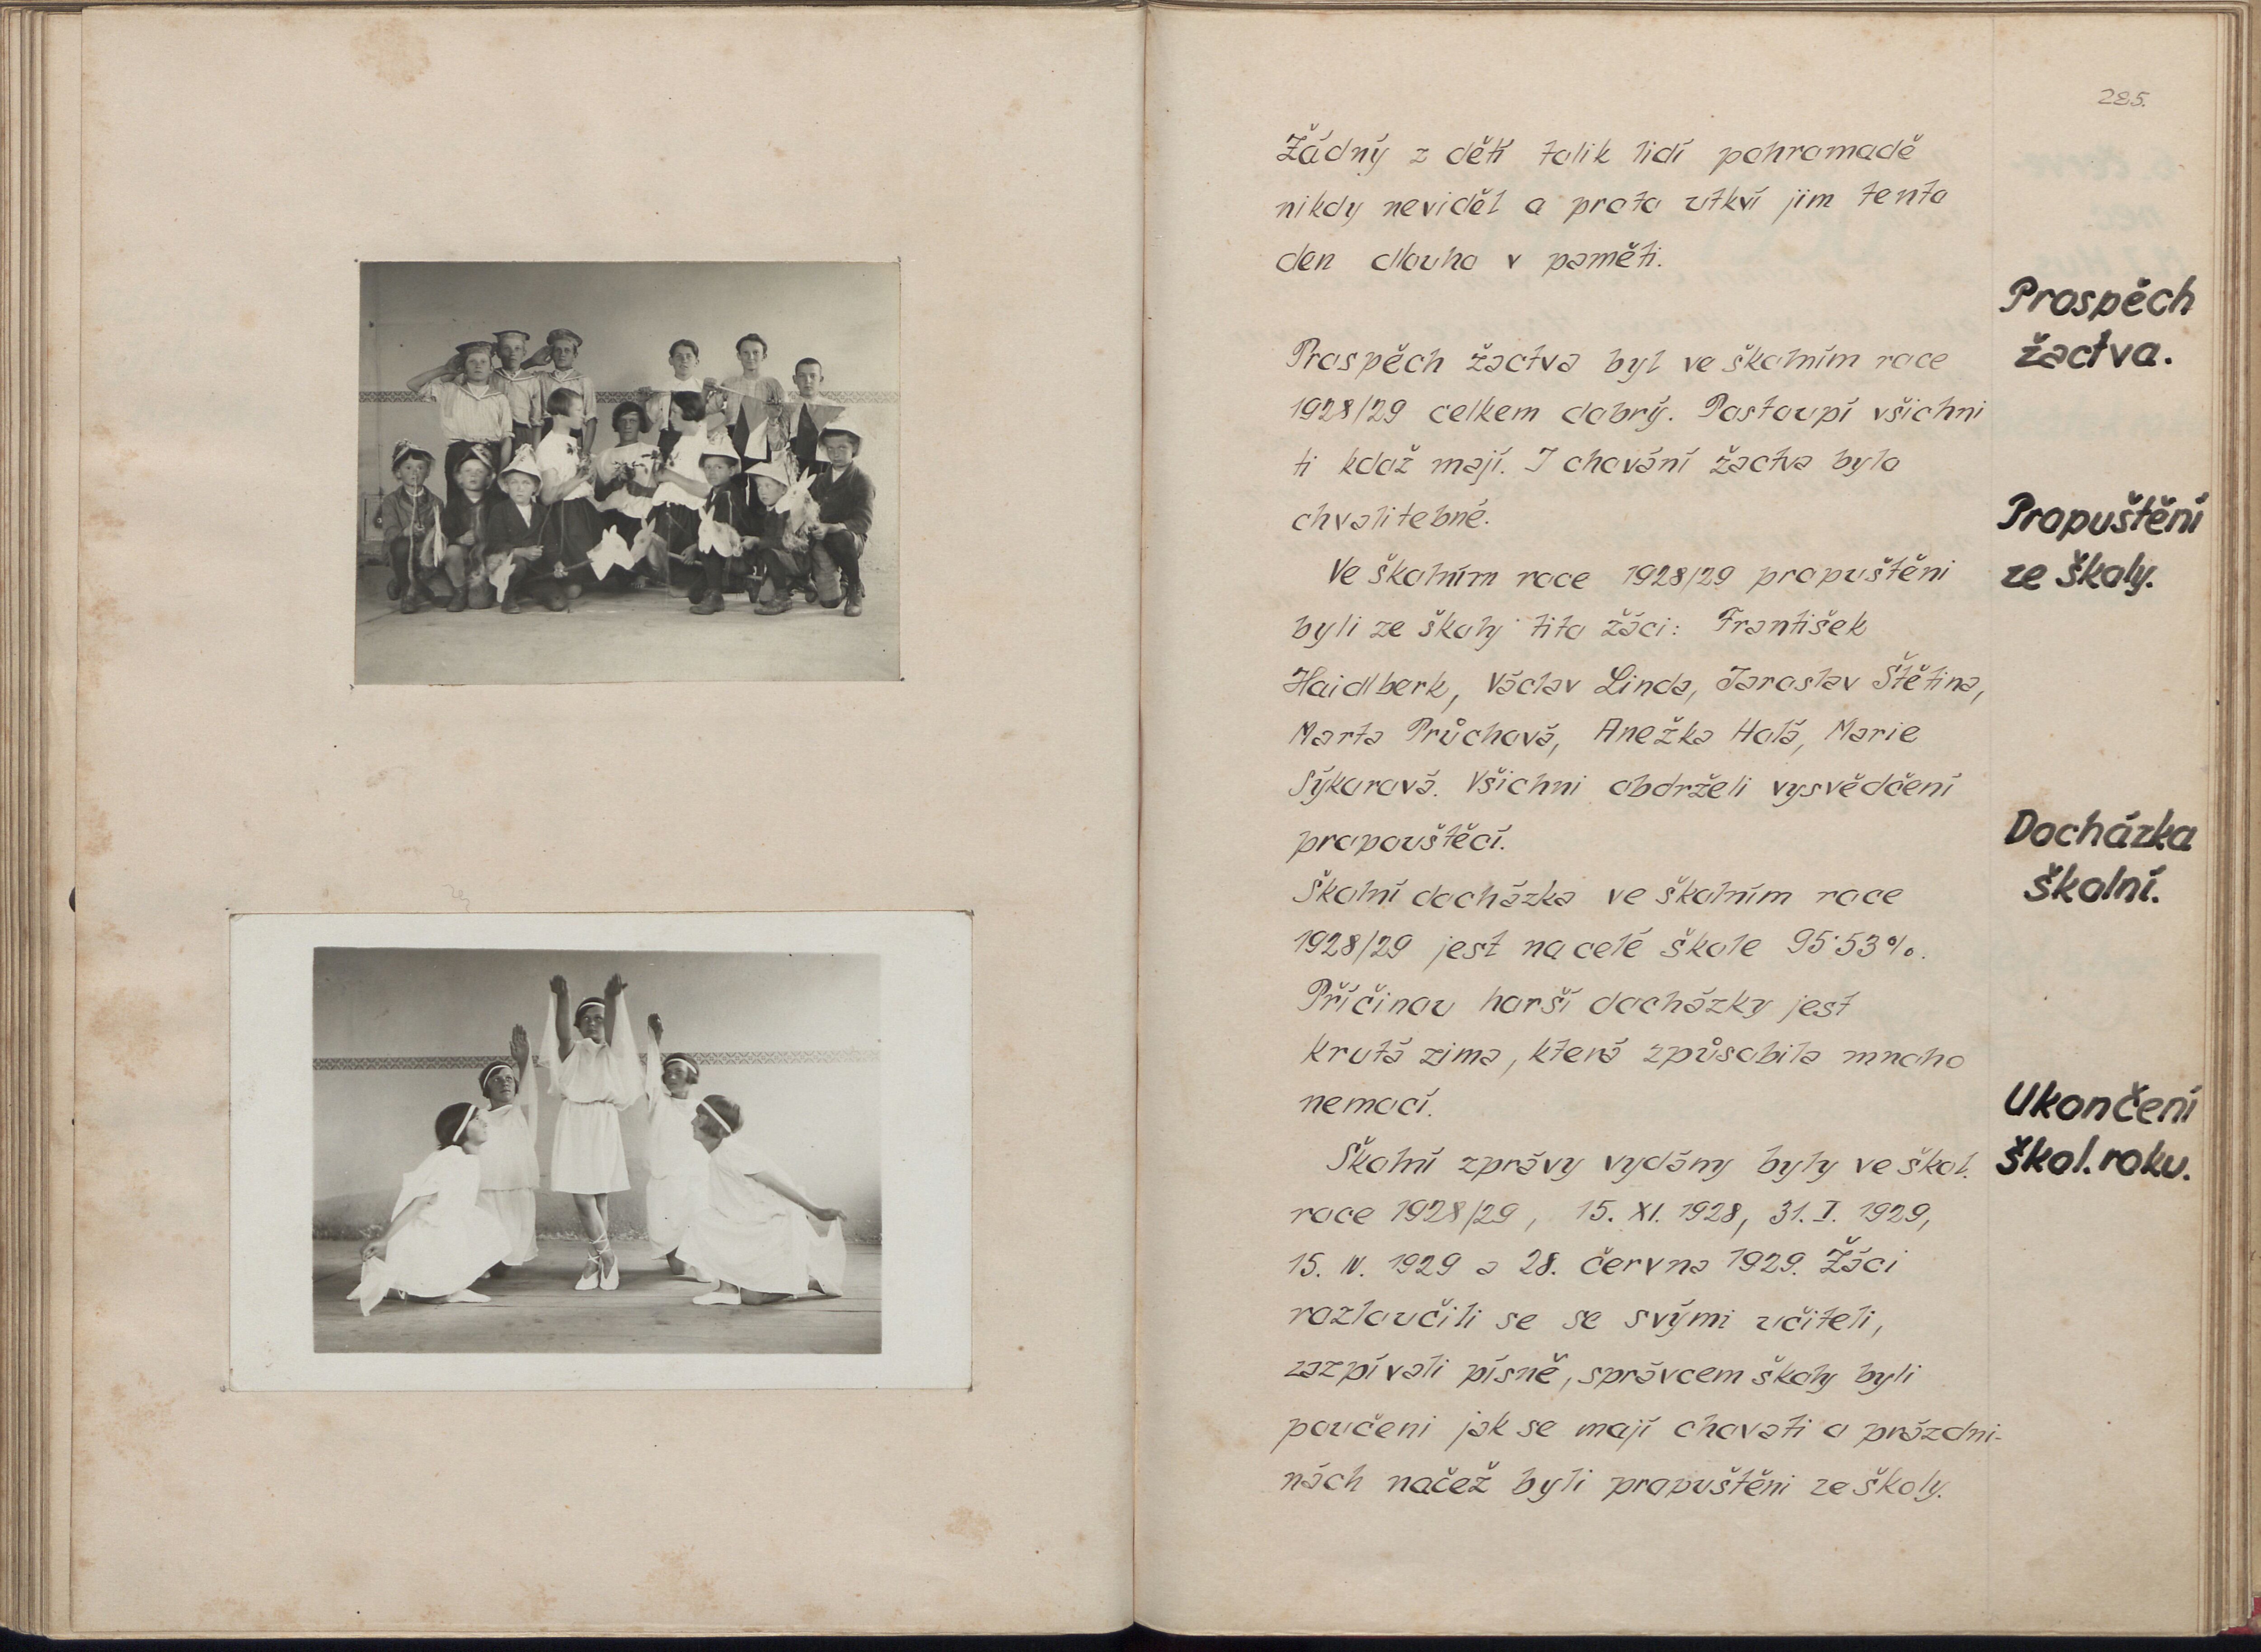 285.
Žádný z dětí tolik lidí pohromadě
nikdy neviděl a proto utkví jim tento
den dlouho v paměti.
Prospěch
žactva.
Prospěch žactva byl ve školním roce
1928/29 celkem dobrý. Postoupí všichni
ti kdož mají. I chování žactva bylo
chvalitebné.
Propuštění
ze školy.
Ve školním roce 1928/29 propuštěni
byli ze školy tito žáci: František
Haidlberk, Václav Linda, Jaroslav Štětina,
Marta Průchová, Anežka Holá, Marie
Sýkorová. Všichni obdrželi vysvědčení
propouštěcí.
Docházka
školní.
Školní docházka ve školním roce
1928/29 jest na celé škole 95·53%.
Příčinou horší docházky jest
krutá zima, která způsobila mnoho
nemocí.
Ukončení
škol. roku.
Školní zprávy vydány byly ve škol.
roce 1928/29, 15. XI. 1928, 31. I. 1929,
15. IV. 1929 a 28. června 1929. Žáci
rozloučili se se svými učiteli,
zazpívali písně, správcem školy byli
poučeni jak se mají chovati o prázdni-
nách načež byli propuštěni ze školy.